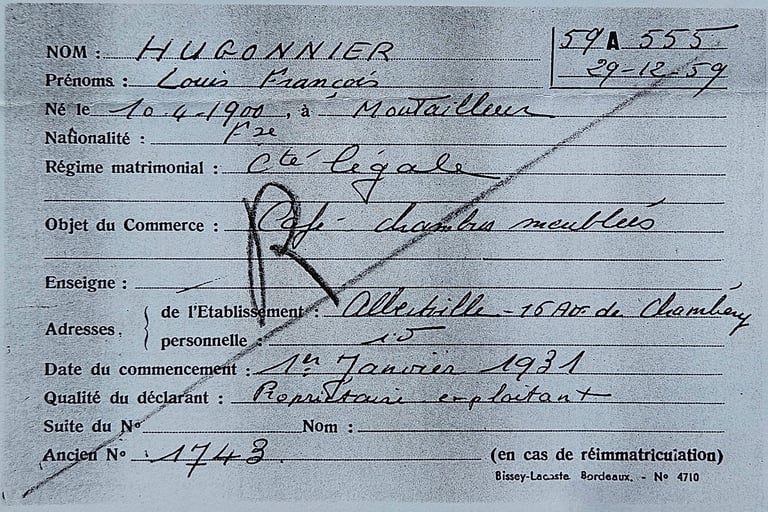 NOM : HUGONNIER
59 A 555
29-12-59
Prénoms : Louis François
Né le 10.4.1900, à Montailleur
Nationalité : Fse
Régime matrimonial : Cté légale
R
Objet du Commerce : Café - chambres meublées
Enseigne :
Adresses, de l'Etablissement : Albertville - 16 Av. de Chambéry
personnelle :
Date du commencement : 1er Janvier 1931
Qualité du déclarant : Propriétaire exploitant
Suite du No Nom :
Ancien No : 1743. (en cas de réimmatriculation)
Bissey-Lacoste Bordeaux. - No 4710